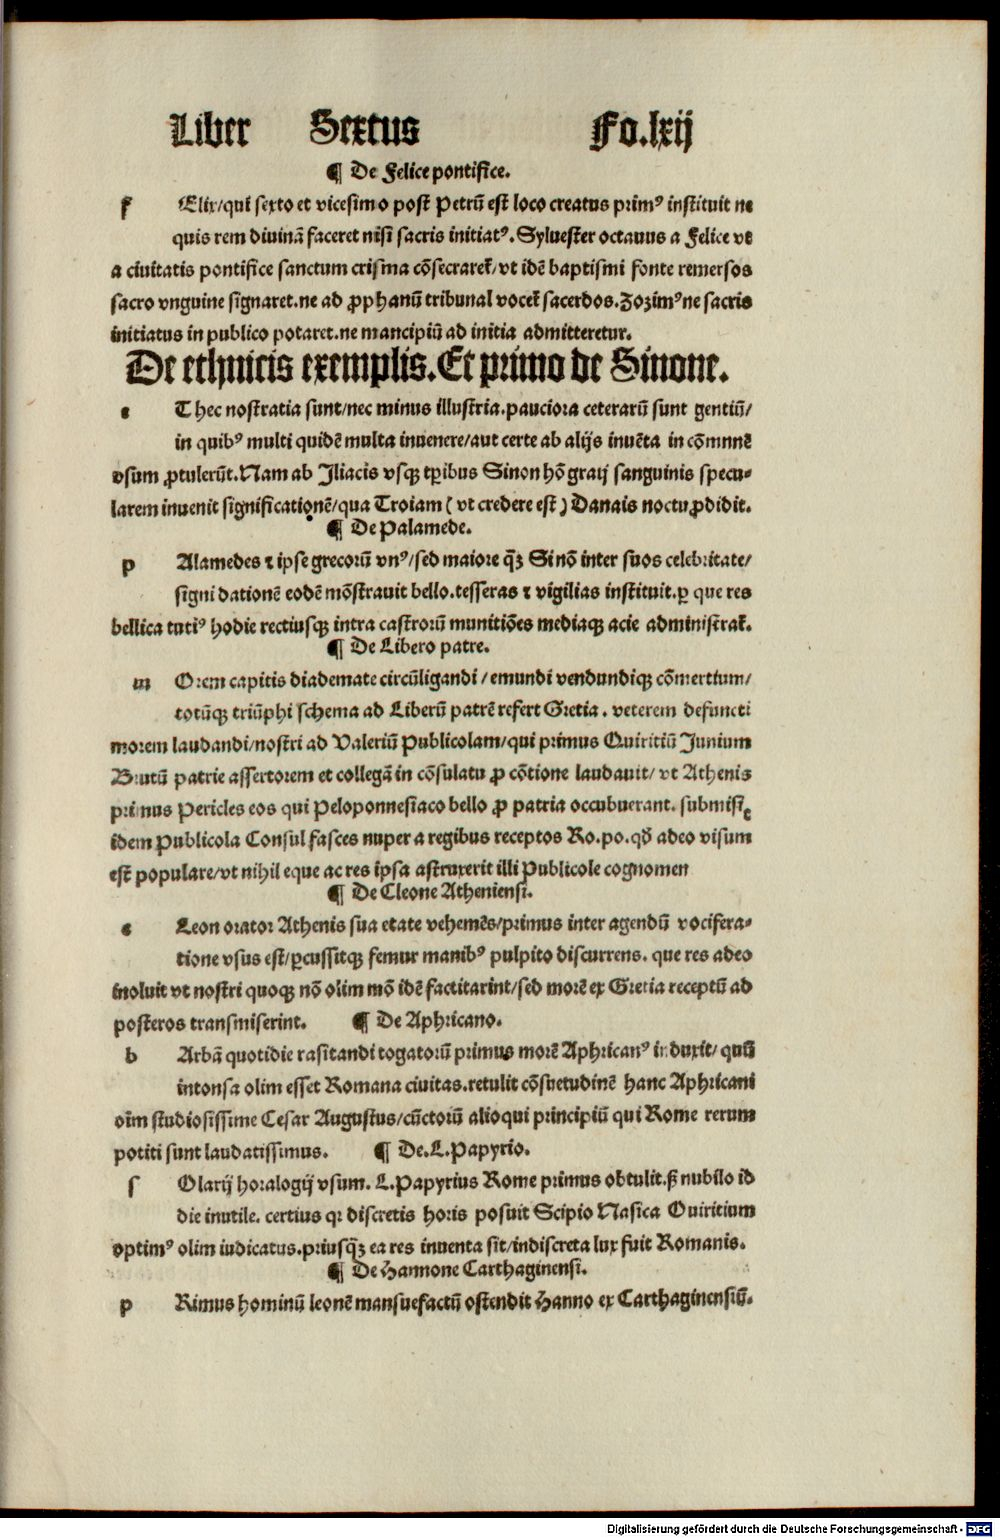 Liber Sextus Fo.lxij
¶ De Felice pontifice.
f Elix/qui sexto et vicesimo post Petrū est loco creatus primꝰ instituit ne
quis rem diuinā faceret nisi sacris initiatꝰ. Syluester octauus a Felice vt
a ciuitatis pontifice sanctum crisma cōsecraret̄/vt idē baptismi fonte remersos
sacro vnguine signaret.ne ad ꝓphanū tribunal vocet̄ sacerdos.Zozimꝰ ne sacris
initiatus in publico potaret.ne mancipiū ad initia admitteretur.
De ethnicis exemplis.Et primo de Sinone.
e T hec nostratia sunt/nec minus illustria.pauciora ceterarū sunt gentiū/
in quibꝰ multi quidē multa inuenere/aut certe ab alijs inuēta in cōmunē
vsum ꝓtulerūt.Nam ab Iliacis vsqꝫ tꝑibus Sinon hō graij sanguinis specu-
larem inuenit significationē/qua Troiam ( vt credere est ) Danais noctu ꝓdidit.
¶ De Palamede.
p Alamedes ⁊ ipse grecorū vnꝰ/sed maiore q̄ꝫ Sinō inter suos celebritate/
signi dationē eodē mōstrauit bello.tesseras ⁊ vigilias instituit.ꝑ que res
bellica tutiꝰ hodie rectiusqꝫ intra castrorū munitiōes mediaqꝫ acie administrat̄.
¶ De Libero patre.
m Orem capitis diademate circūligandi / emundi vendundiqꝫ cōmertium/
totūqꝫ triūphi schema ad Liberū patrē refert Gretia . veterem defuncti
morem laudandi/nostri ad Valeriū Publicolam/qui primus Quiritiū Junium
Brutū patrie assertorem et collegā in cōsulatu ꝓ cōtione laudauit/ vt Athenis
primus Pericles eos qui Peloponnesiaco bello ꝓ patria occubuerant. submisit
idem Publicola Consul fasces nuper a regibus receptos Ro.po.qđ adeo visum
est populare/vt nihil eque ac res ipsa astruxerit illi Publicole cognomen
¶ De Cleone Atheniensi.
c Leon orator Athenis sua etate vehemēs/primus inter agendū vocifera-
tione vsus est/ꝑcussitqꝫ femur manibꝰ pulpito discurrens. que res adeo
inoluit vt nostri quoqꝫ nō olim mō idē factitarint/sed morē ex Gretia receptū ad
posteros transmiserint. ¶ De Aphricano.
b Arbā quotidie rasitandi togatorū primus morē Aphricanꝰ induxit/ quū
intonsa olim esset Romana ciuitas.retulit cōsuetudinē hanc Aphricani
oīm studiosissime Cesar Augustus/cūctorū alioqui principiū qui Rome rerum
potiti sunt laudatissimus. ¶ De.L.Papyrio.
s Olarij horalogij vsum. L.Papyrius Rome primus obtulit.sꝫ nubilo id
die inutile. certius qr discretis horis posuit Scipio Nasica Quiritium
optimꝰ olim iudicatus.priusq̄ꝫ ea res inuenta sit/indiscreta lux fuit Romanis.
¶ De Hannone Carthaginensi.
p Rimus hominū leonē mansuefactū ostendit Hanno ex Carthaginensiū.
Digitalisierung gefördert durch die Deutsche Forschungsgemeinschaft - DFG